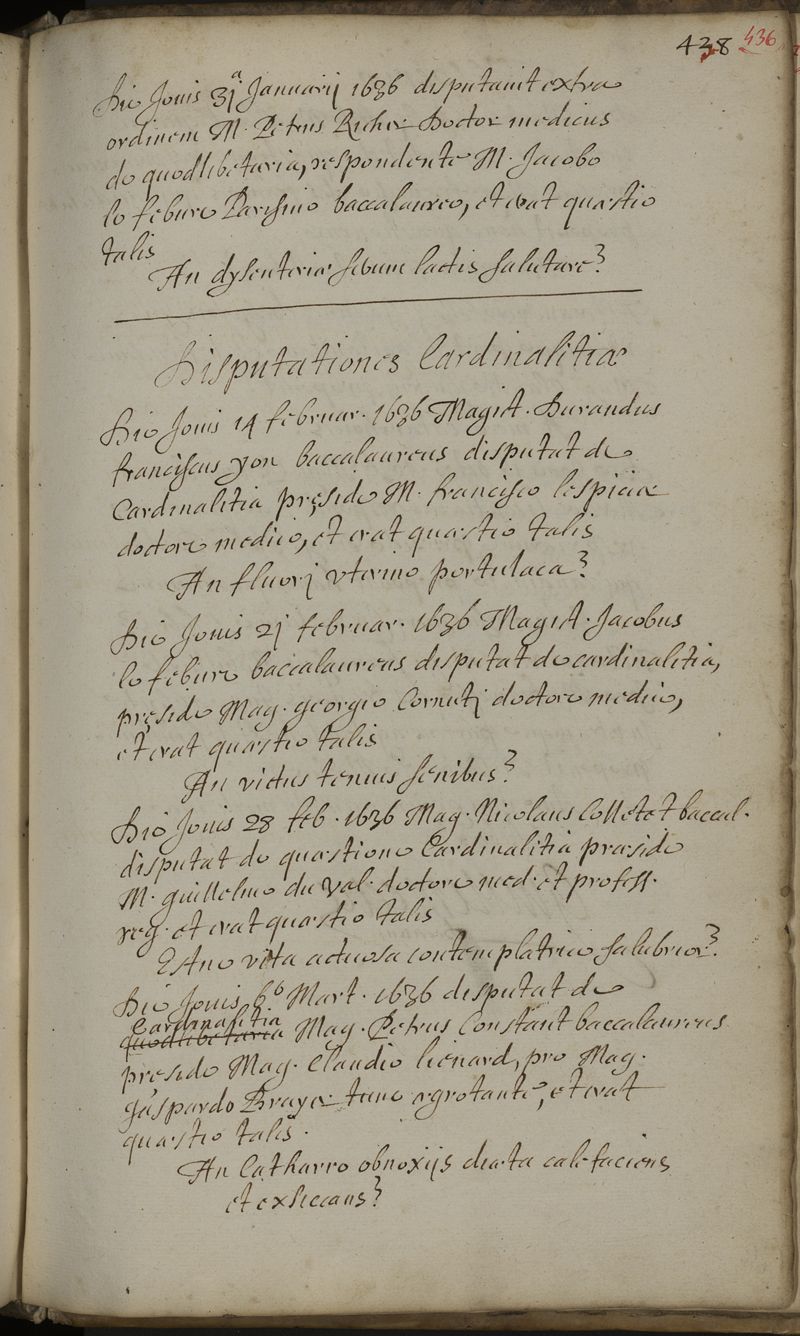 438 436
Die Jovis 31ª Januarij 1636 disputavit extra
ordinem M. Petrus Richer Doctor medicus
de quodlibetaria, respondente M. Jacobo
le febure Parisino baccalaureo, et erat quæstio
talis
An dysenteriæ serum lactis salutare?
Disputationes Cardinalitiæ
Die Jovis 14 februar. 1636 Magist. Durandus
franciscus yon baccalaureus disputat de
Cardinalitia pręside M. francisco lespicier
doctore medico, et erat quæstio talis
An fluorj uterino portulaca?
Die Jovis 21 februar. 1636 Magist. Jacobus
le febure baccalaureus disputat de cardinalitia,
pręside Mag. georgio Cornutj doctore medico,
et erat quæstio talis
An victus tenuis senibus?
Die Jovis 28 feb. 1636 Mag. Nicolaus Colletet baccal.
disputat de quæstione Cardinalitia præside
M. guillelmo du val doctore med. et profess.
reg. et erat quæstio talis
Estne vita actuosa contemplatrice salubrior?
Die Jovis 6º Mart. 1636 disputat de
Cardinalitia
quodlibetaria Mag. Petrus Constant baccalaureus
preside Mag. Claudio lienard, pro Mag.
gaspardo Brayer tunc ægrotante, et erat
quæstio talis.
An Catharro obnoxijs diæta calefaciens
et exsiccans?